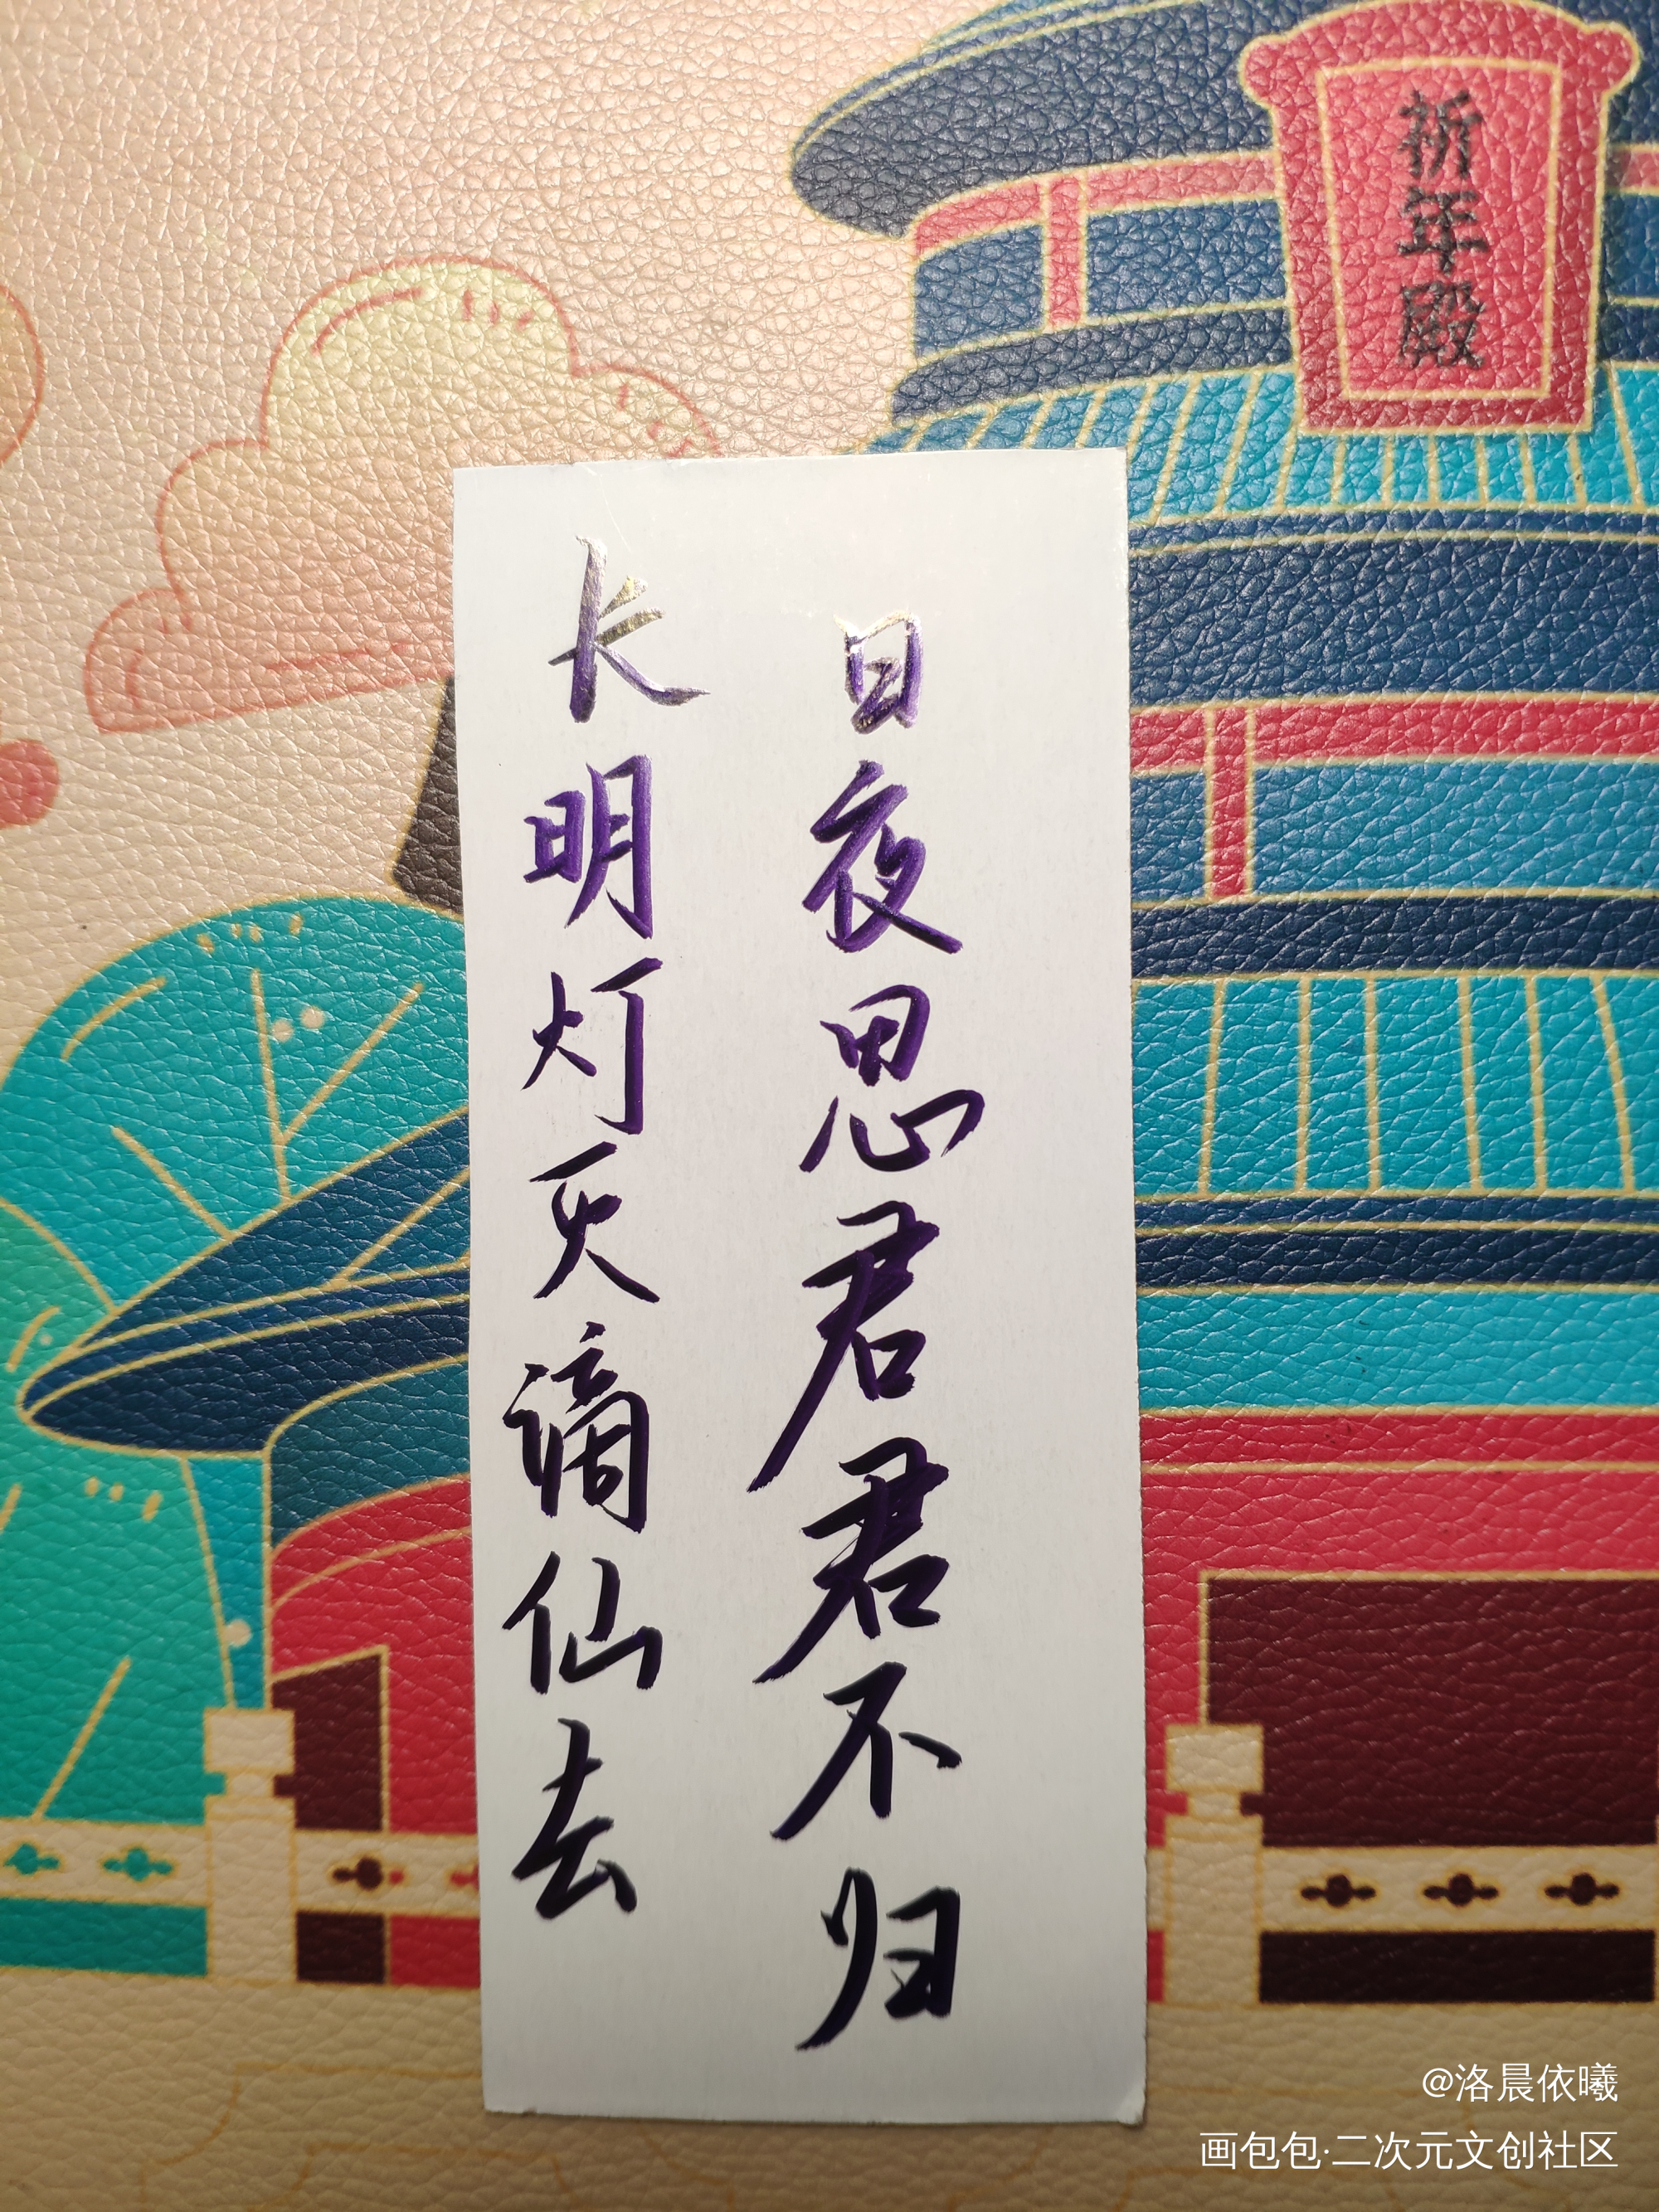 祈年殿
日夜思君君不归
长明灯灭谪仙去
@洛晨依曦
画包包·二次元文创社区